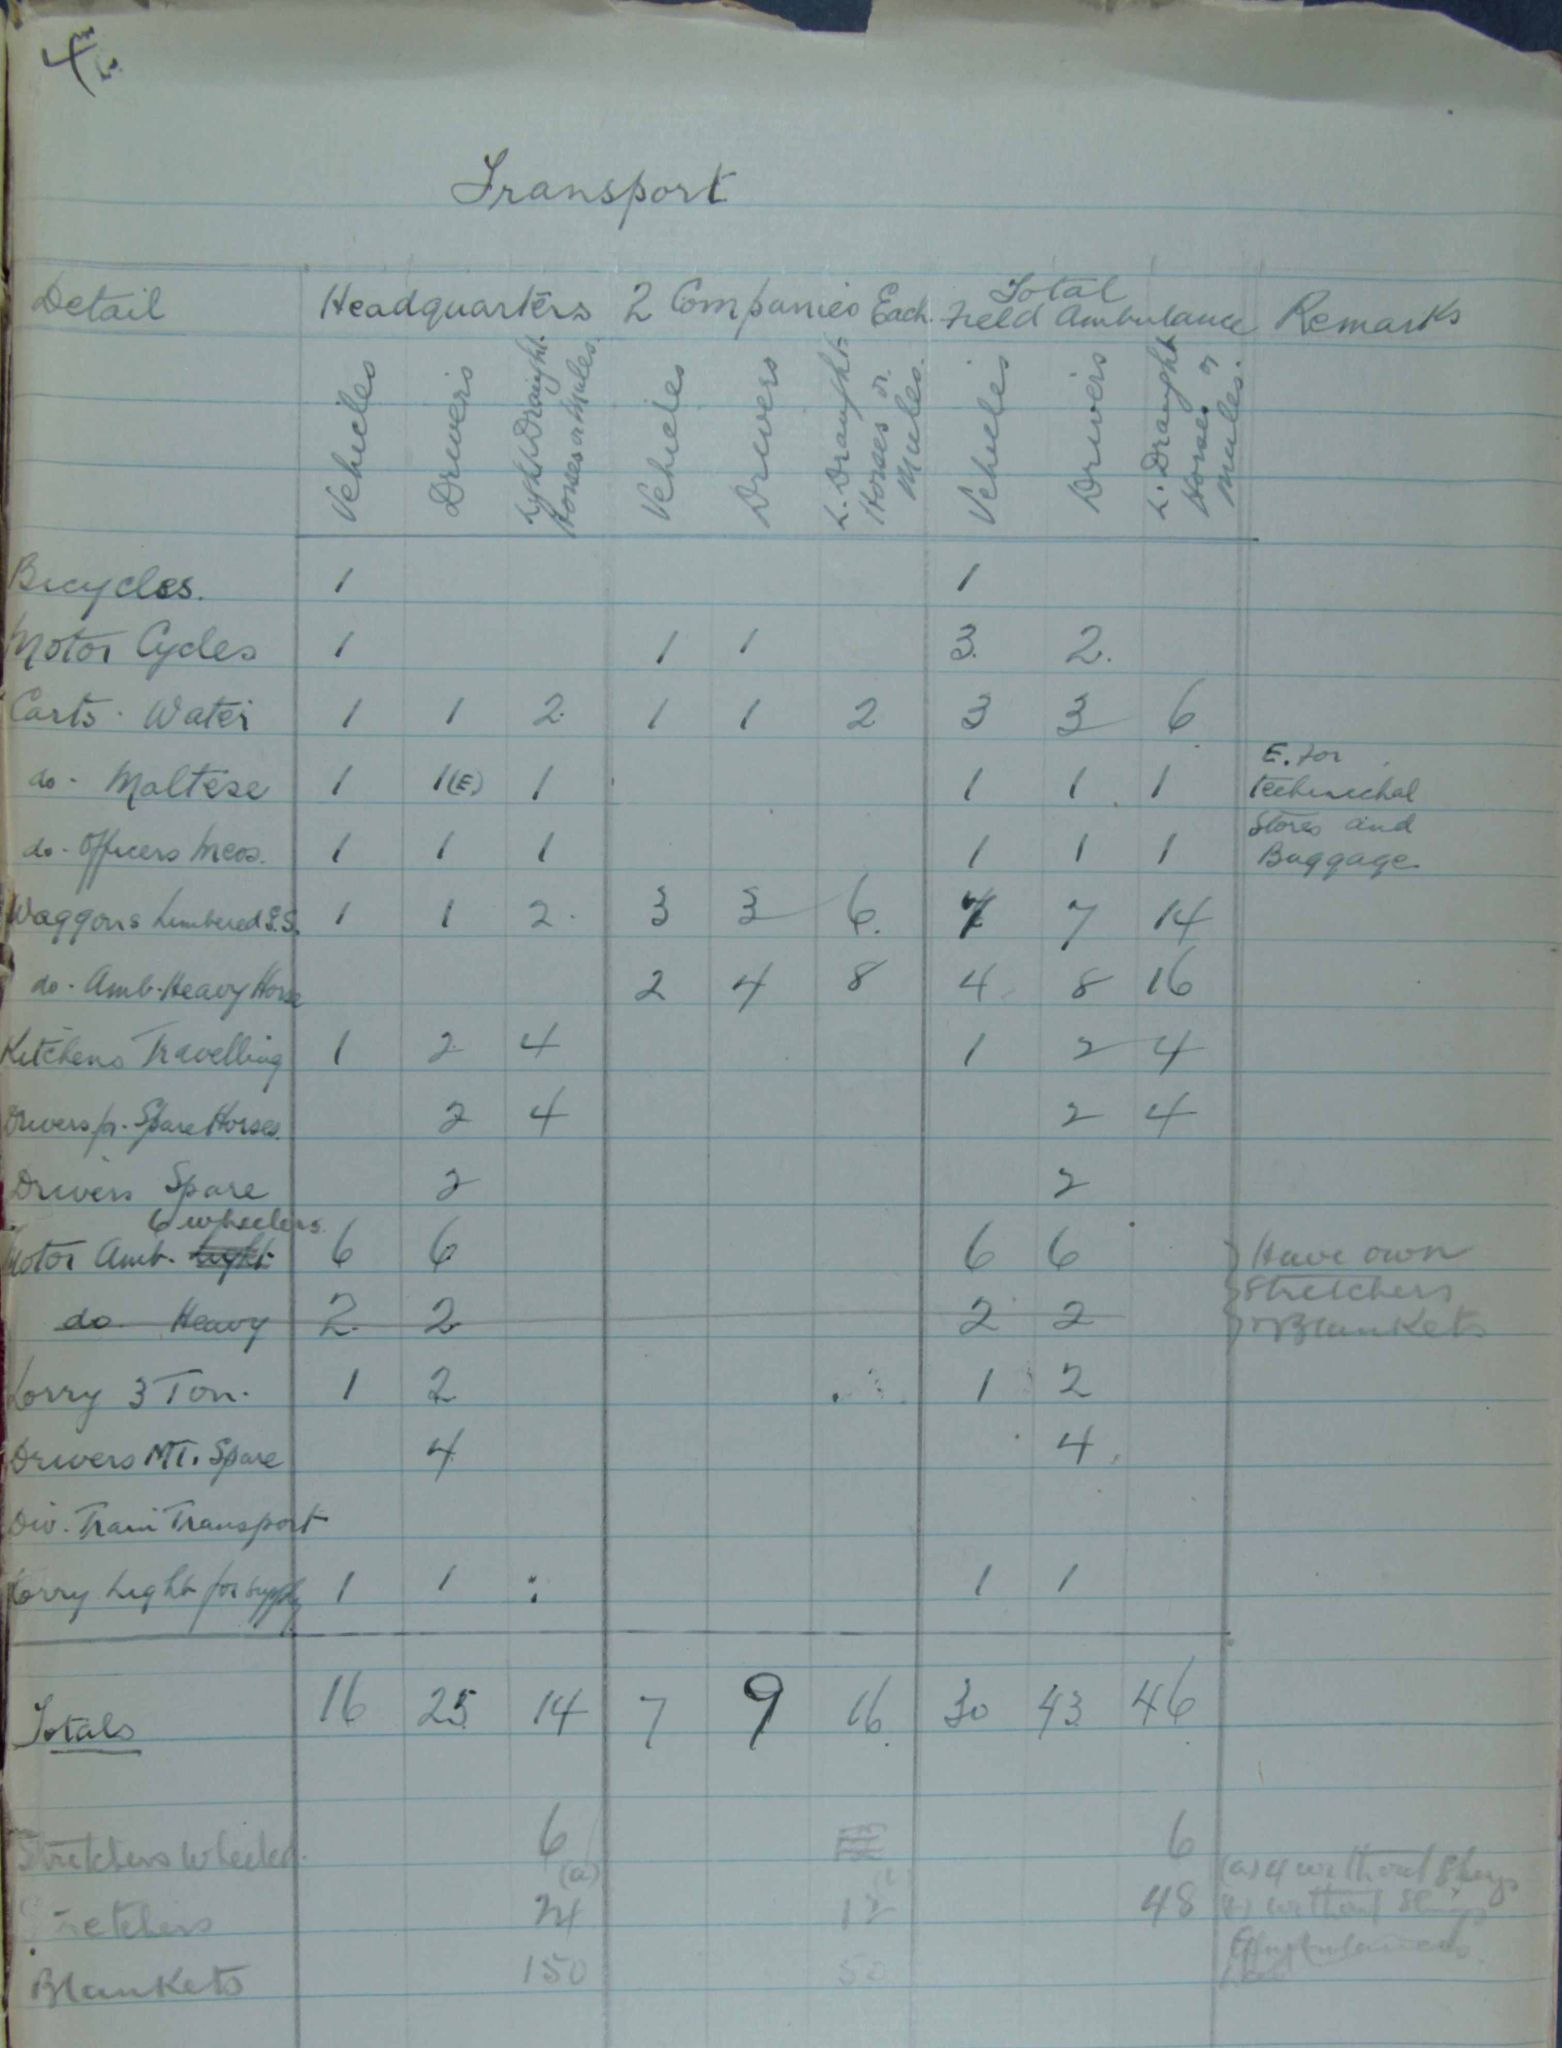 4.
Transport
Detail Headquarters 2 Companies Each. Total Field Ambulance Remarks
Vehicles Drivers Light Draught Horses or Mules. Vehicles Drivers L. Draught Horses or Mules. Vehicles Drivers L. Draught Horses or Mules.
Bicycles. 1 1
Motor Cycles 1 1 1 3. 2.
Carts. Water 1 1 2. 1 1 2 3 3 6
do. Maltese 1 1(E) 1 1 1 1 E. For Technichal
do. Officers Mess. 1 1 1 1 1 1 Stores and Baggage
Waggons Limbered G.S. 1 1 2. 3 3 6. 7 7 14
do. Amb. Heavy Horse 2 4 8 4 8 16
Kitchens Travelling 1 2 4 1 2 4
Drivers for Spare Horses. 2 4 2 4
Drivers Spare 2 2
6 wheelers
Motor Amb. Light 6 6 6 6 Have own
do Heavy 2 2 2 2 Stretchers & Blankets
Lorry 3 Ton. 1 2 1 2
Drivers MT. Spare 4 4
Div. Train Transport
Lorry Light for supply 1 1 1 1
Totals 16 25 14 7 9 16 30 43 46
Stretchers Wheeled. 6 6
(a) (a) 4 without Slings
Stretchers 24 12 48 without Slings
Blankets 150 50